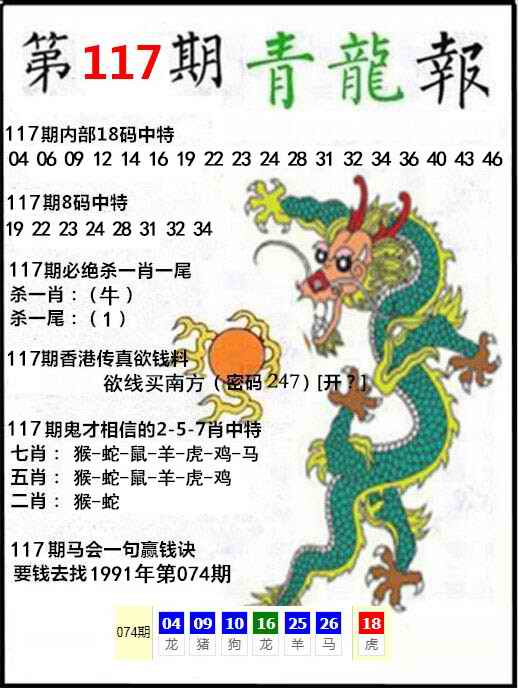 第117期青龍報
117期内部18码中特
04 06 09 12 14 16 19 22 23 24 28 31 32 34 36 40 43 46
117期8码中特
19 22 23 24 28 31 32 34
117期必绝杀一肖一尾
杀一肖：（牛）
杀一尾：（1）
117期香港传真欲钱料
欲线买南方（密码247）[开？]
117期鬼才相信的2-5-7肖中特
七肖： 猴-蛇-鼠-羊-虎-鸡-马
五肖： 猴-蛇-鼠-羊-虎-鸡
二肖： 猴-蛇
117期马会一句赢钱诀
要钱去找1991年第074期
074期 04 09 10 16 25 26 18
龙 猪 狗 龙 羊 马 虎